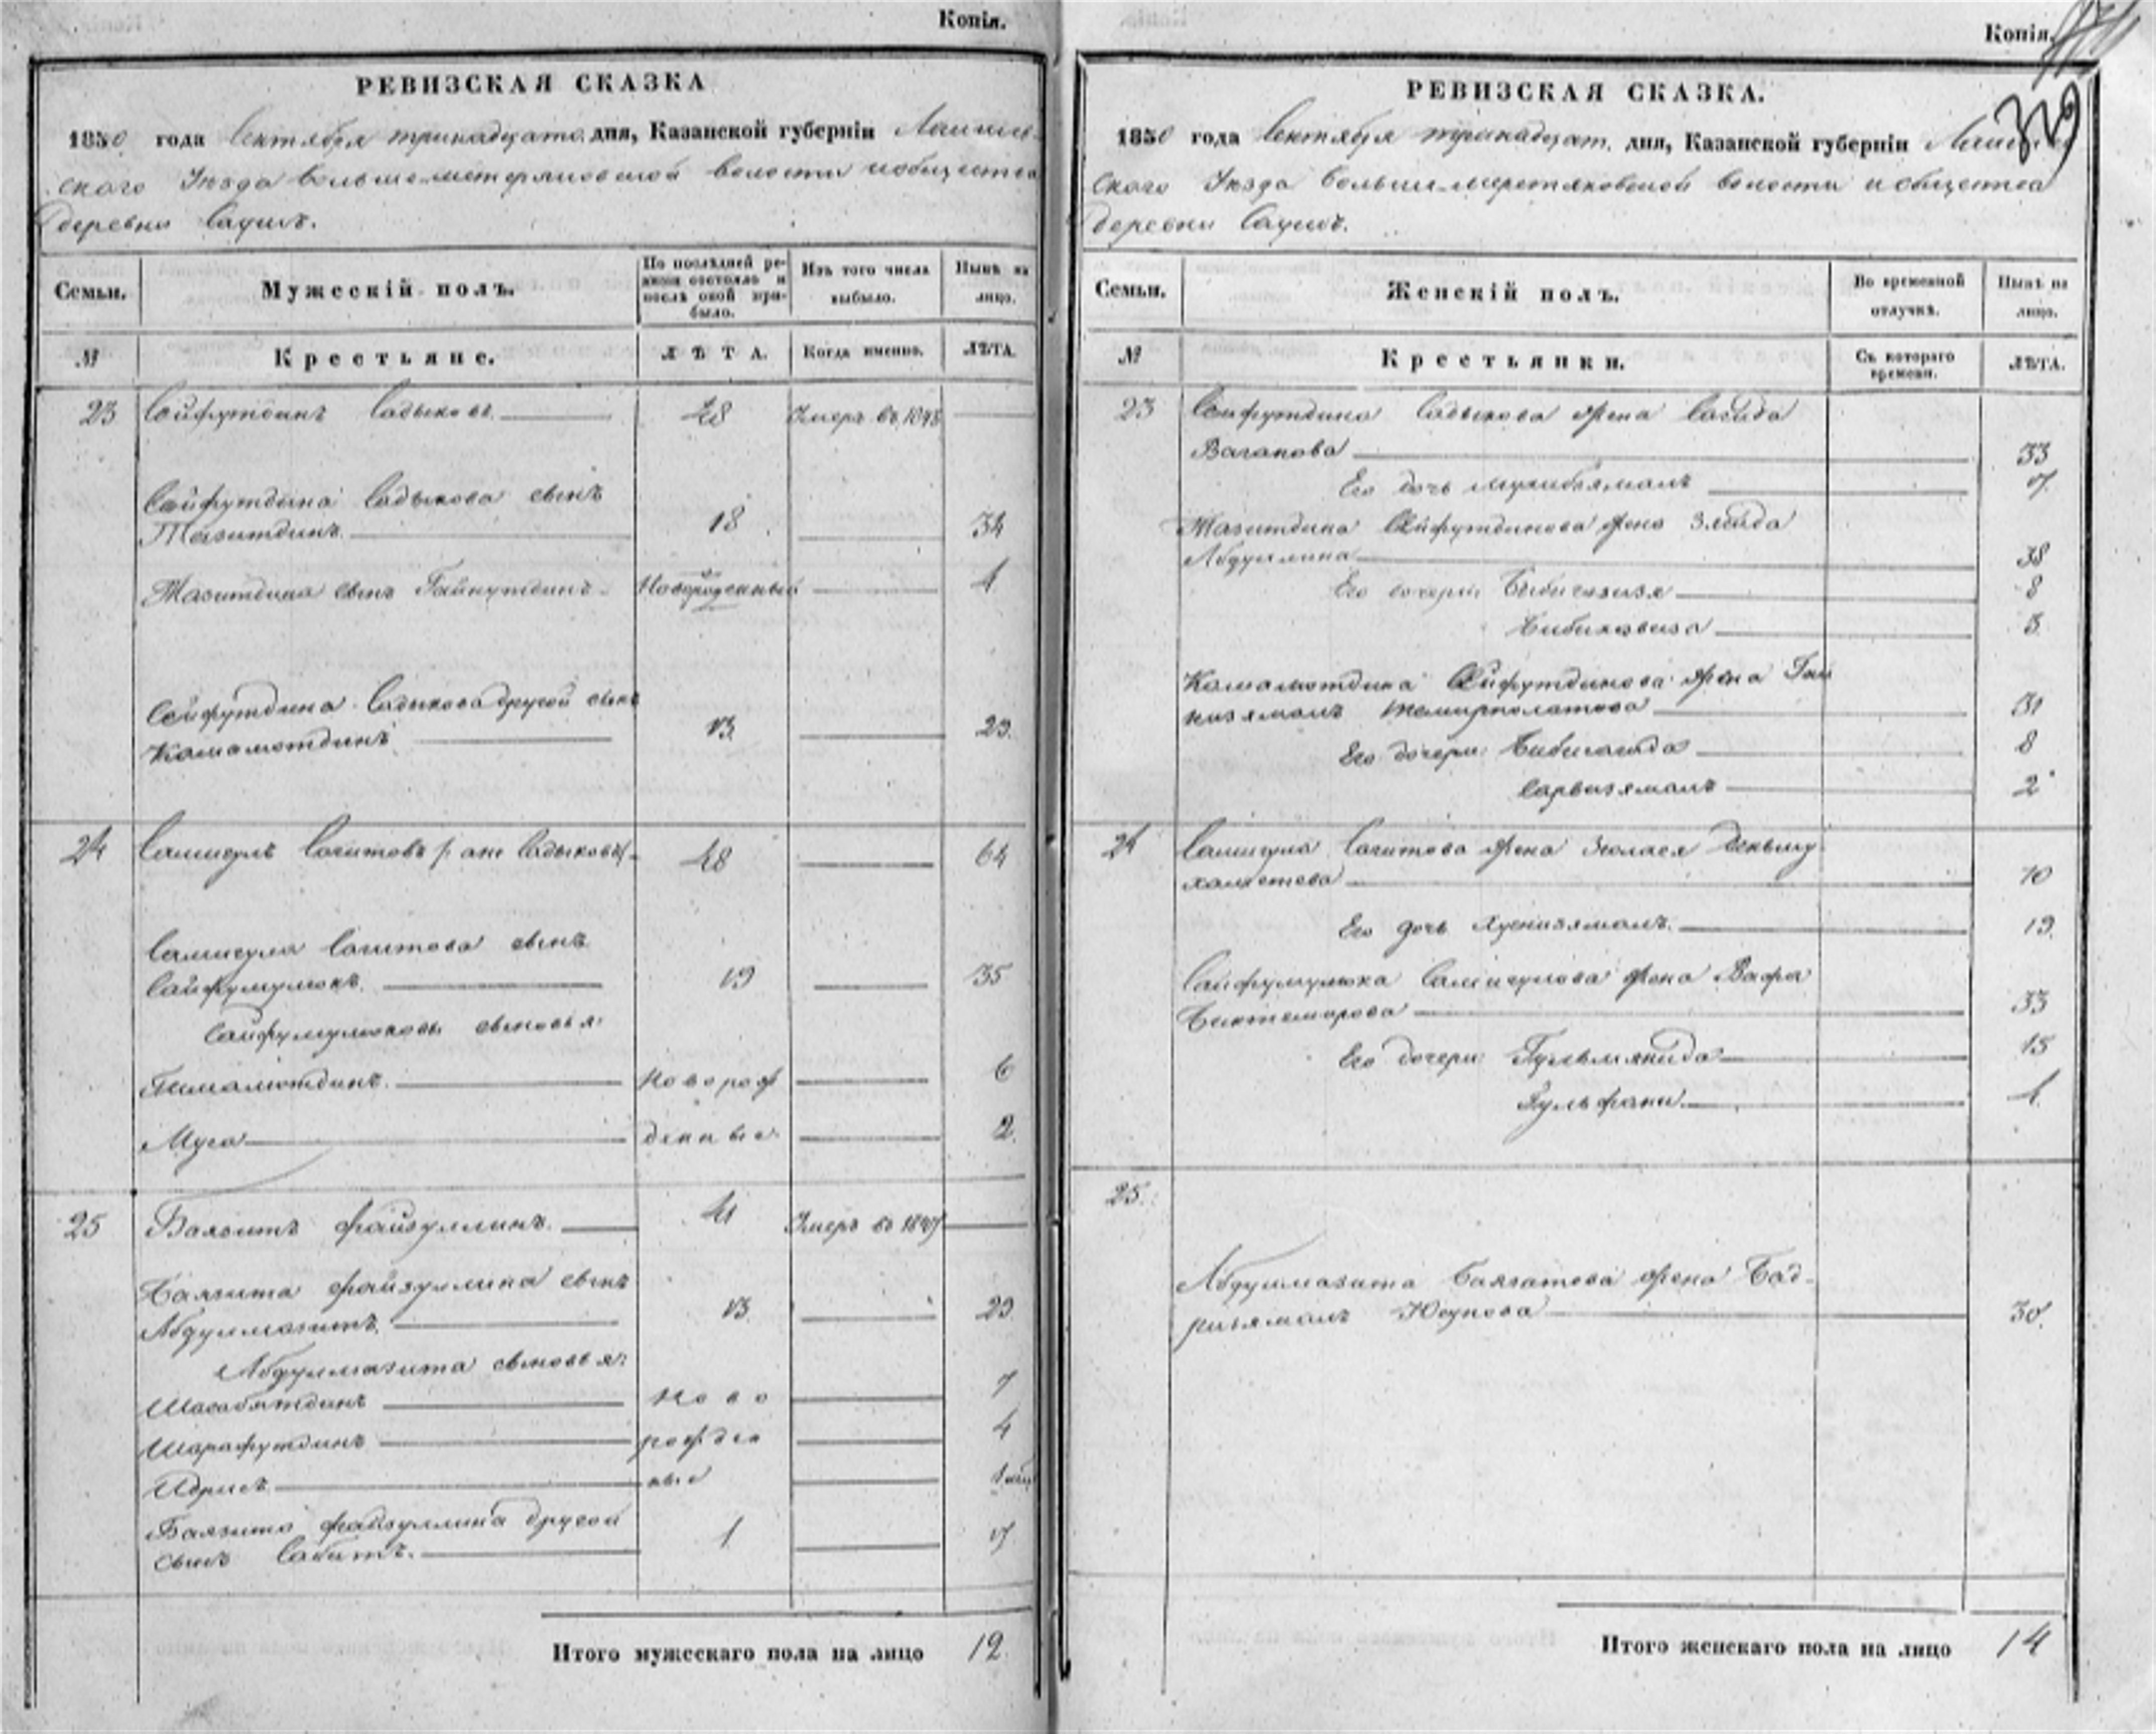 Копія.
РЕВИЗСКАЯ СКАЗКА
1850 года Сентября тринадцатого дня, Казанской губерніи Лаишев-
скаго Уѣзда волости и общества
деревни Саушъ.
Семьи. Мужескій полъ. По послѣдней ре-визіи состояло и послѣ оной при-было. Изъ того числа выбыло. Нынѣ на лицо.
№ Крестьяне. ЛѢТА. Когда именно. ЛѢТА.
23 Сайфутдинъ Садыковъ 48 Умеръ въ 1848
Сайфутдина Садыкова сынъ
Тазитдинъ 18 34
Тазитдина сынъ Гайнутдинъ Новорожденный 1
Сайфутдина Садыкова другой сынъ
Камалетдинъ 13 29
24 Салигулъ Сагитовъ (: онъ Садыковъ:) 48 64
Салигула Сагитова сынъ
Сайфулмулюкъ 19 35
Сайфулмулюковы сыновья:
Гималетдинъ новорож 6
Муса денные 2
25 Баязитъ Файзуллинъ 41 Умеръ въ 1847
Баязита Файзуллина сынъ
Абдулмазитъ 13 29
Абдулмазита сыновья:
Шагабутдинъ ново 7
Шарафутдинъ рожден 4
Идрисъ ные
Баязита Файзуллина другой
сынъ Сабитъ 1 17
Итого мужескаго пола на лицо 12
Копія.
329
РЕВИЗСКАЯ СКАЗКА.
1850 года Сентября тринадцат. дня, Казанской губерніи
скаго Уѣзда волости и общества
деревни Саушъ.
Семьи. Женскій полъ. Во временной отлучкѣ. Нынѣ на лицо.
№ Крестьянки. Съ котораго времени. ЛѢТА.
23 Сайфутдина Садыкова жена Сагида
Ваганова 33
Его дочь 7
Тазитдина Сайфутдинова жена
Абдуллина 38
Его дочери: 8
3
Камалетдина Сайфутдинова жена
31
Его дочери: Бибисагида 8
Сарвизямалъ 2
24 Салигула Сагитова жена Зюлася Деньму
хаметева 70
Его дочь Хуснизямалъ 19
Сайфулмулюка Салигулова жена Вафа
Биктемирова 33
Его дочери: 15
Гульфани 1
25.
Абдулмазита Баязитова жена Бад-
ризямалъ Юсупова 30
Итого женскаго пола на лицо 14